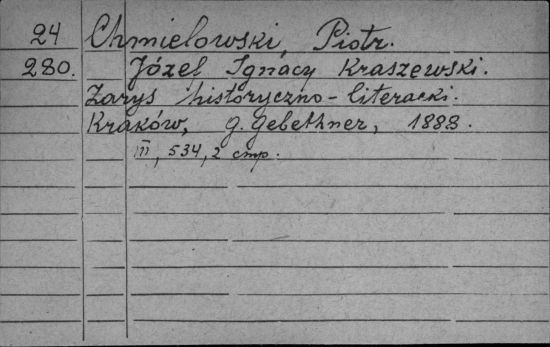 24 Chmielowski, Piotr.
280. Józef Ignacy Kraszewski.
Zarys historyczno-literacki.
Kraków, G. Gebethner, 1888.
III, 534, 2 стр.